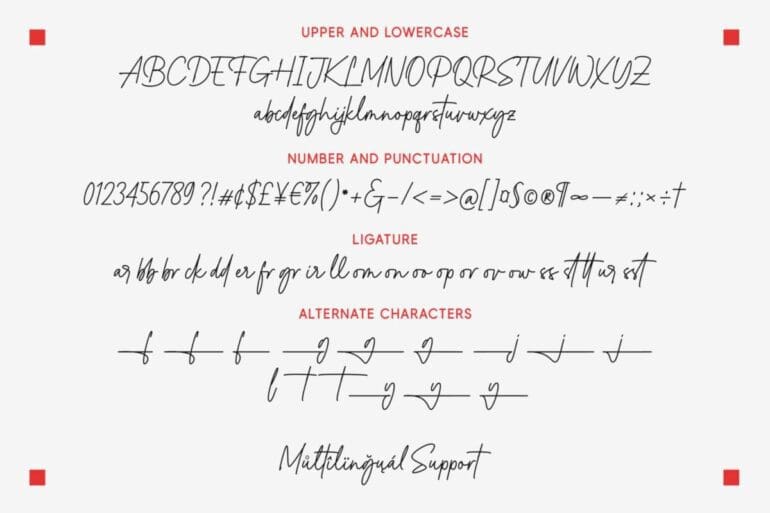 UPPER AND LOWERCASE
ABCDEFGHIJKLMNOPQRSTUVWXYZ
abcdefghijklmnopqrstuvwxyz
NUMBER AND PUNCTUATION
0123456789?!#¢$£¥€%()•+&-/<=>@[]¤§©®¶∞—≠:;×÷†
LIGATURE
ar bb br ck dd er fr gr ir ll om on oo op or ov ow ss st tt ur sst
ALTERNATE CHARACTERS
f f f g g g j j j
l t t y y y
Můltîlinğuál Support